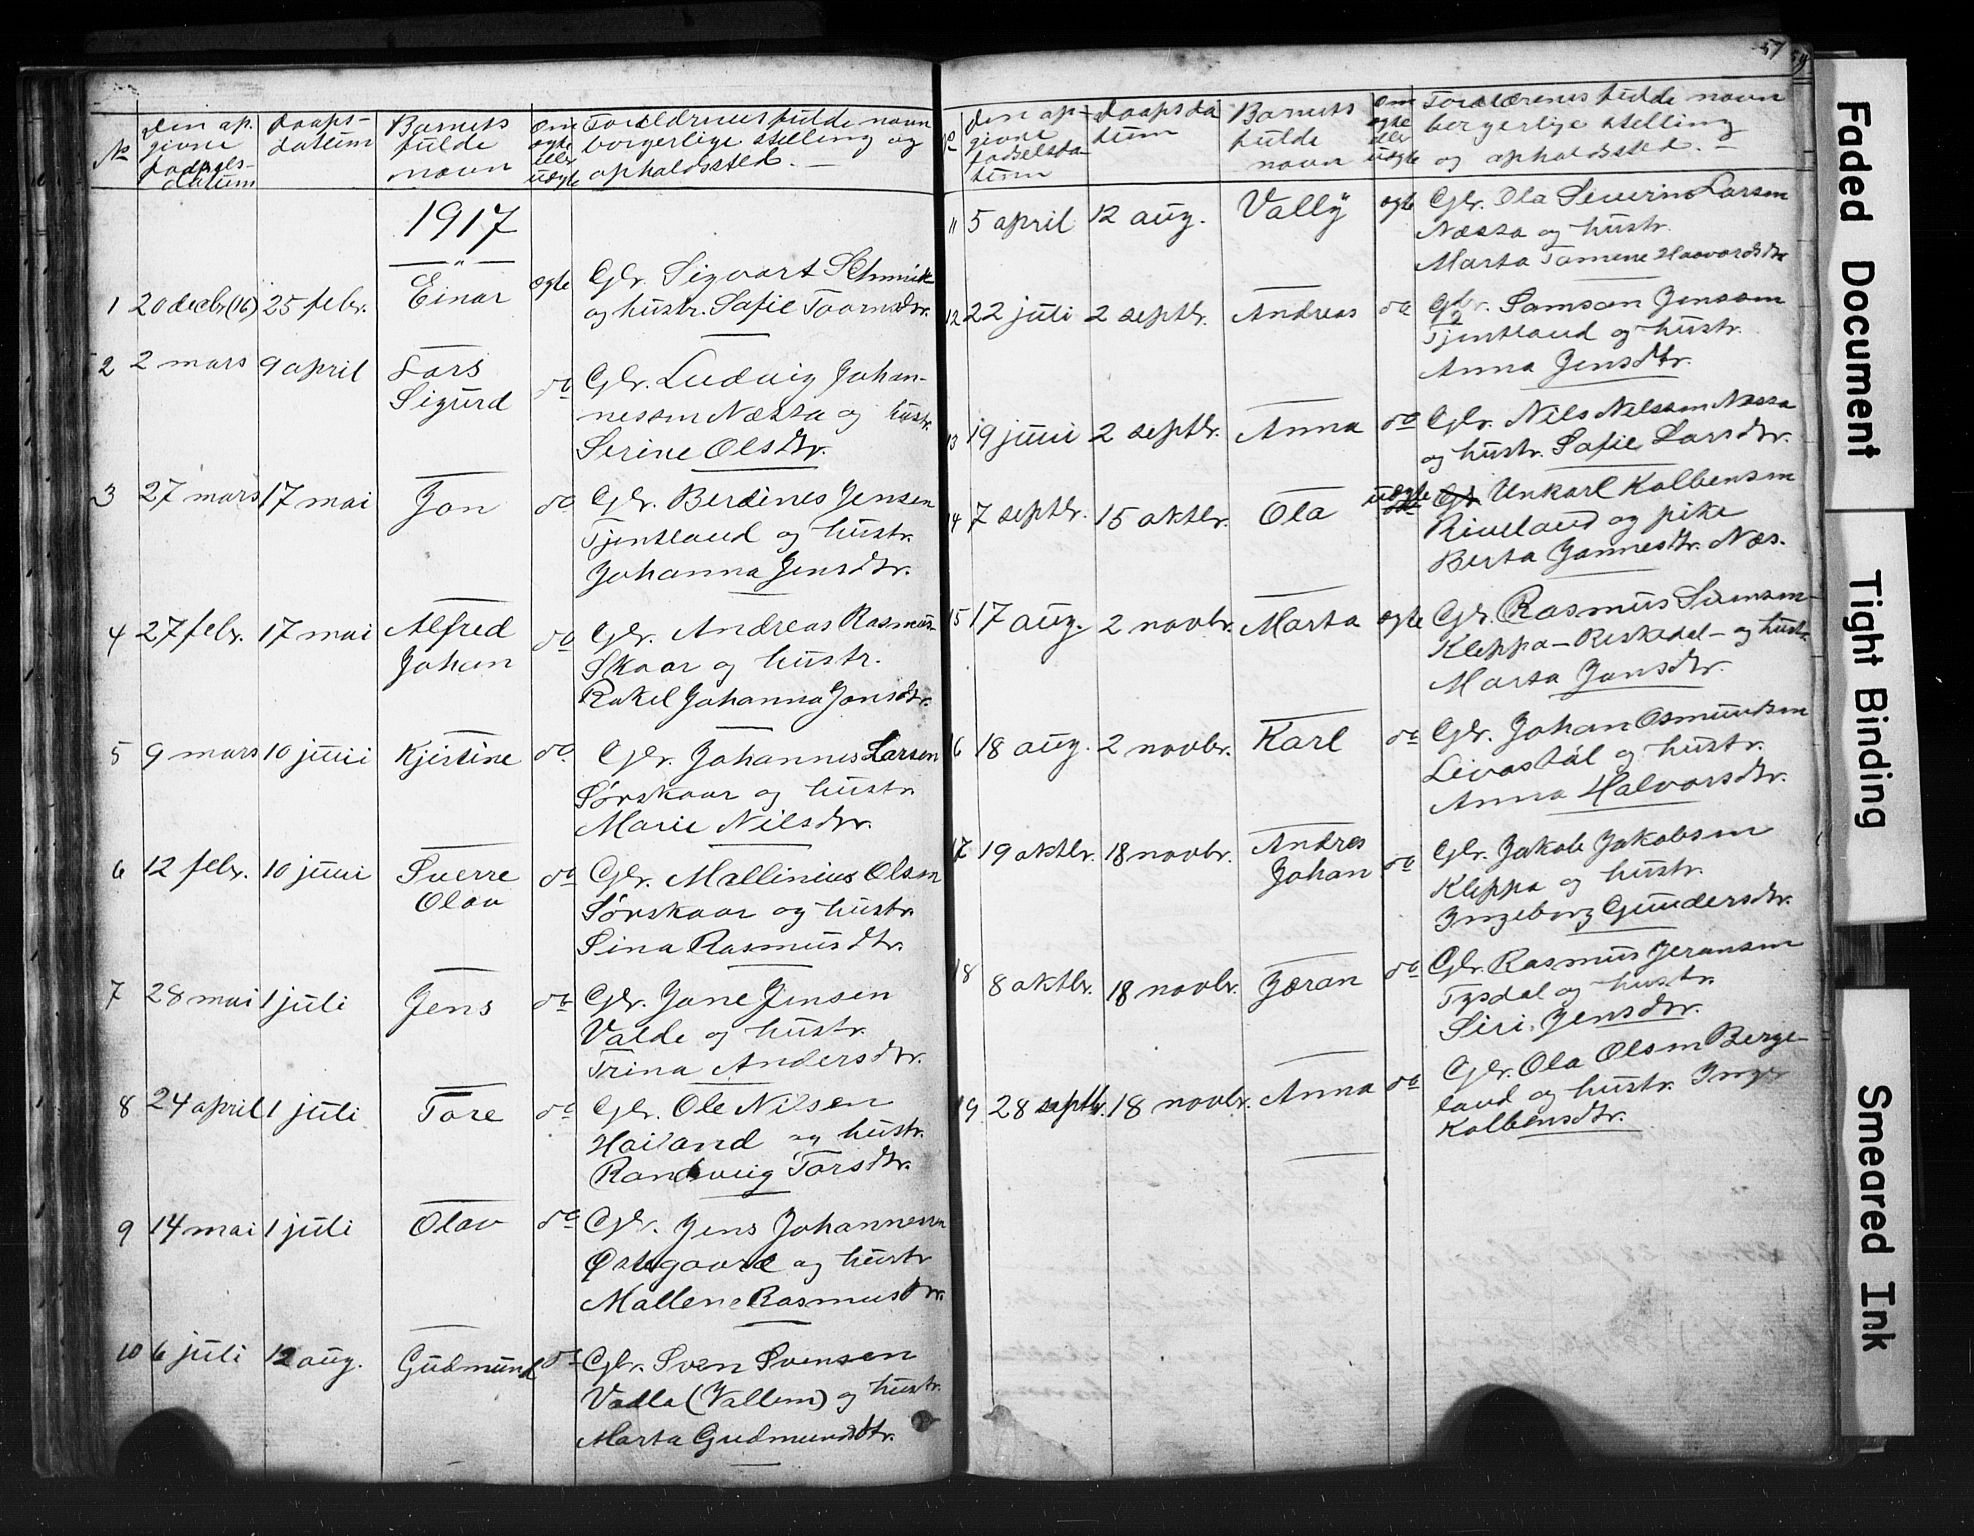 No
Den op.
givne
fødsels-
datum
Daaps-
datum
Barnets
fulde
navn
Om
egte
eller
uegte
Forældrenes fulde navn
borgerlige stilling og
opholdssted. —
1917
1 20 decbr (16) 25 febr. Einar egte Gbr. Sigvart Schmidt
og hustr. Sofie Toornsdtr.
2 2 mars 9 april Lars
Sigurd do Gbr. Ludvig Johan-
nessen Næssa og hustr.
Serine Olsdtr.
3 27 mars 17 mai Jon do Gbr. Berdines Jensen
Tjentland og hustr.
Johanna Jensdtr.
4 27 febr. 17 mai Alfred
Johan do Gbr. Andreas Rasmus-
Skaar og hustr.
Rakel Johanna Jonsdtr.
5 9 mars 10 juni Kjistine do Gbr. Johannes Larsen
Sørskaar og hustr.
Marie Nilsdtr.
6 12 febr. 10 juni Sverre
Olav do Gbr. Mallinius Olsen
Sørskaar og hustr.
Sina Rasmusdtr.
7 28 mai 1 juli Jens do Gbr. Jone Jensen
Valde og hustr.
Trina Andersdtr.
8 24 april 1 juli Tore do Gbr. Ole Nilsen
Hauland og hustr.
Randveig Torsdtr.
9 14 mai 1 juli Olav do Gbr. Jens Johannessen
Østegaard og hustr
Mallene Rasmusdtr.
10 6 juli 12 aug. Gudmund do Gbr. Sven Svensen
Vadla (Vallem) og hustr.
Marta Gudmundsdtr.
57
59
No
Den op-
givne
fødselsda-
tum
Daapsda
tum
Barnets
fulde
navn
Om
egte
eller
uegte
Forældrenes fulde navn
borgerlige stilling
og opholdssted. —
11 5 april 12 aug. Vally egte Gbr. Ola Severin Larsen
Næssa og hustr.
Marta Tomene Haavardsdtr
12 22 juli 2 septbr. Andreas do Gbr. Samson Jenssen
Tjentland og hustr.
Anna Jensdtr.
13 19 juni 2 septbr. Anna do Gbr. Nils Nilssen Næssa
og hustr. Sofie Larsdtr.
14 7 septbr. 15 oktbr. Ola uegte Gbr Unkarl Kolbensen
Riveland og pike
Berta Jonnesdtr. Næs.
15 17 aug. 2 novbr. Marta egte Gbr. Rasmus Sivensen
Kleppa – Reskedal – og hustr
Marta Jonsdtr.
16 18 aug. 2 novbr. Karl do Gbr. Johan Osmundsen
Livastøl og hustr.
Anna Halvorsdtr.
17 19 oktbr. 18 novbr. Andres
Johan do Gbr. Jakob Jakobsen
Kleppa og hustr.
Ingeborg Gundersdtr.
18 8 oktbr. 18 novbr. Jøran do Gbr. Rasmus Jøransen
Tysdal og hustr.
Siri. Jensdtr.
19 28 septbr. 18 novbr. Anna do Gbr. Ola Olsen Berge-
land og hustr. Inger
Kolbensdtr.
Faded Document
Tight Binding
Smeared Ink